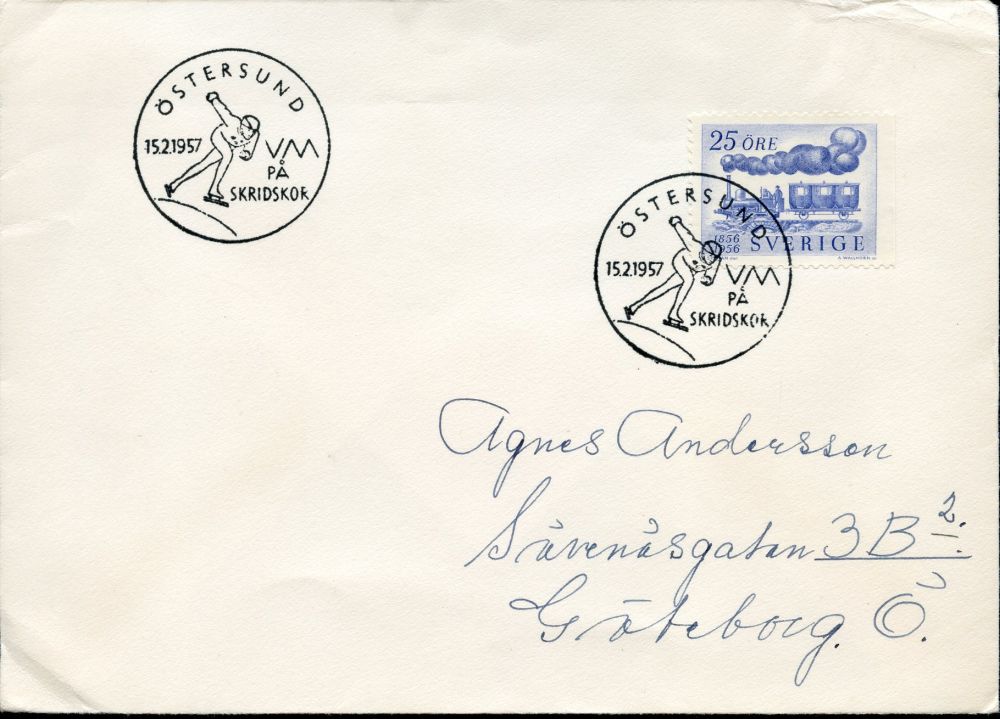 ÖSTERSUND
15.2.1957 VM
PÅ
SKRIDSKOR
25 ÖRE
1856
1956 SVERIGE
A. WALLHORN SC
ÖSTERSUND
15.2.1957 VM
PÅ
SKRIDSKOR
Agnes Andersson
Sävenäsgatan 3 B 2.
Göteborg. Ö.